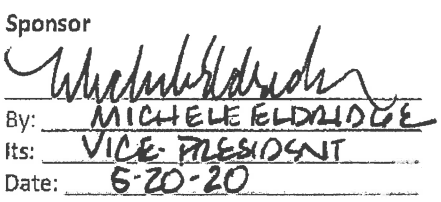 Sponsor
By: MICHELE ELDRIDGE
Its: VICE-PRESIDENT
Date: 5-20-20